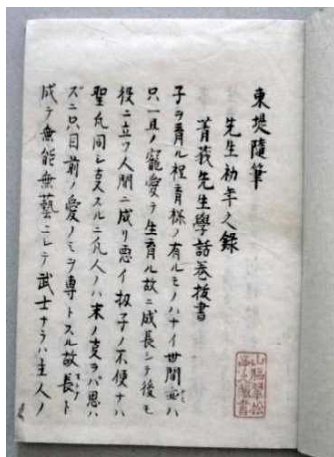 東堤隨筆
先生初年之録
菁莪先生學話巻抜書
子ヲ育ル程育様ノ有ルモノハナイ世間ニハ
只一旦ノ寵愛テ生育ル故ニ成長シテ後モ
役ニ立ツ人間ニ成リ悪イ扨子ノ不便ナハ
聖凡同シ支スルニ凡人ノハ末ノ支ヲバ思ハ
ズニ只目前ノ愛ノミヲ専トスル故長ト
成テ無能無藝ニシテ武士ナラハ主人ノ